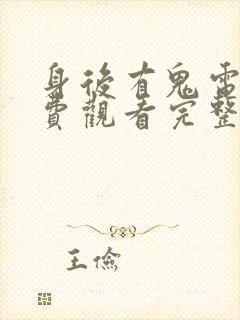 身後有鬼電
費觀看完整
王儉